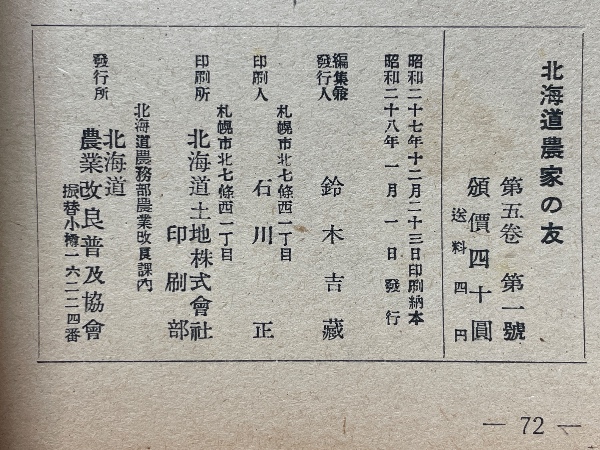 北海道農家の友
第五卷 第一號
頒價四十圓
送料四円
昭和二十七年十二月二十三日印刷納本
昭和二十八年一月一日發行
編集兼
發行人 鈴木吉藏
札幌市北七條西一丁目
印刷人 石川正
札幌市北七條西一丁目
印刷所 北海道土地株式會社
印刷部
北海道農務部農業改良課内
發行所 北海道
農業改良普及協會
振替小樽一六二二四番
— 72 —